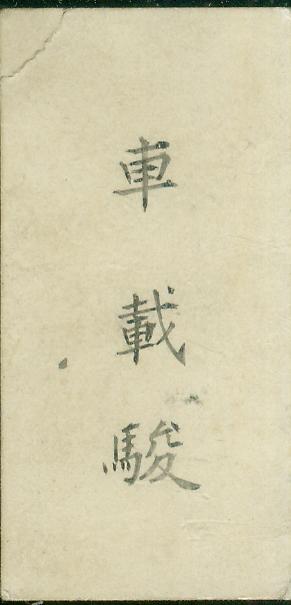 車載駿